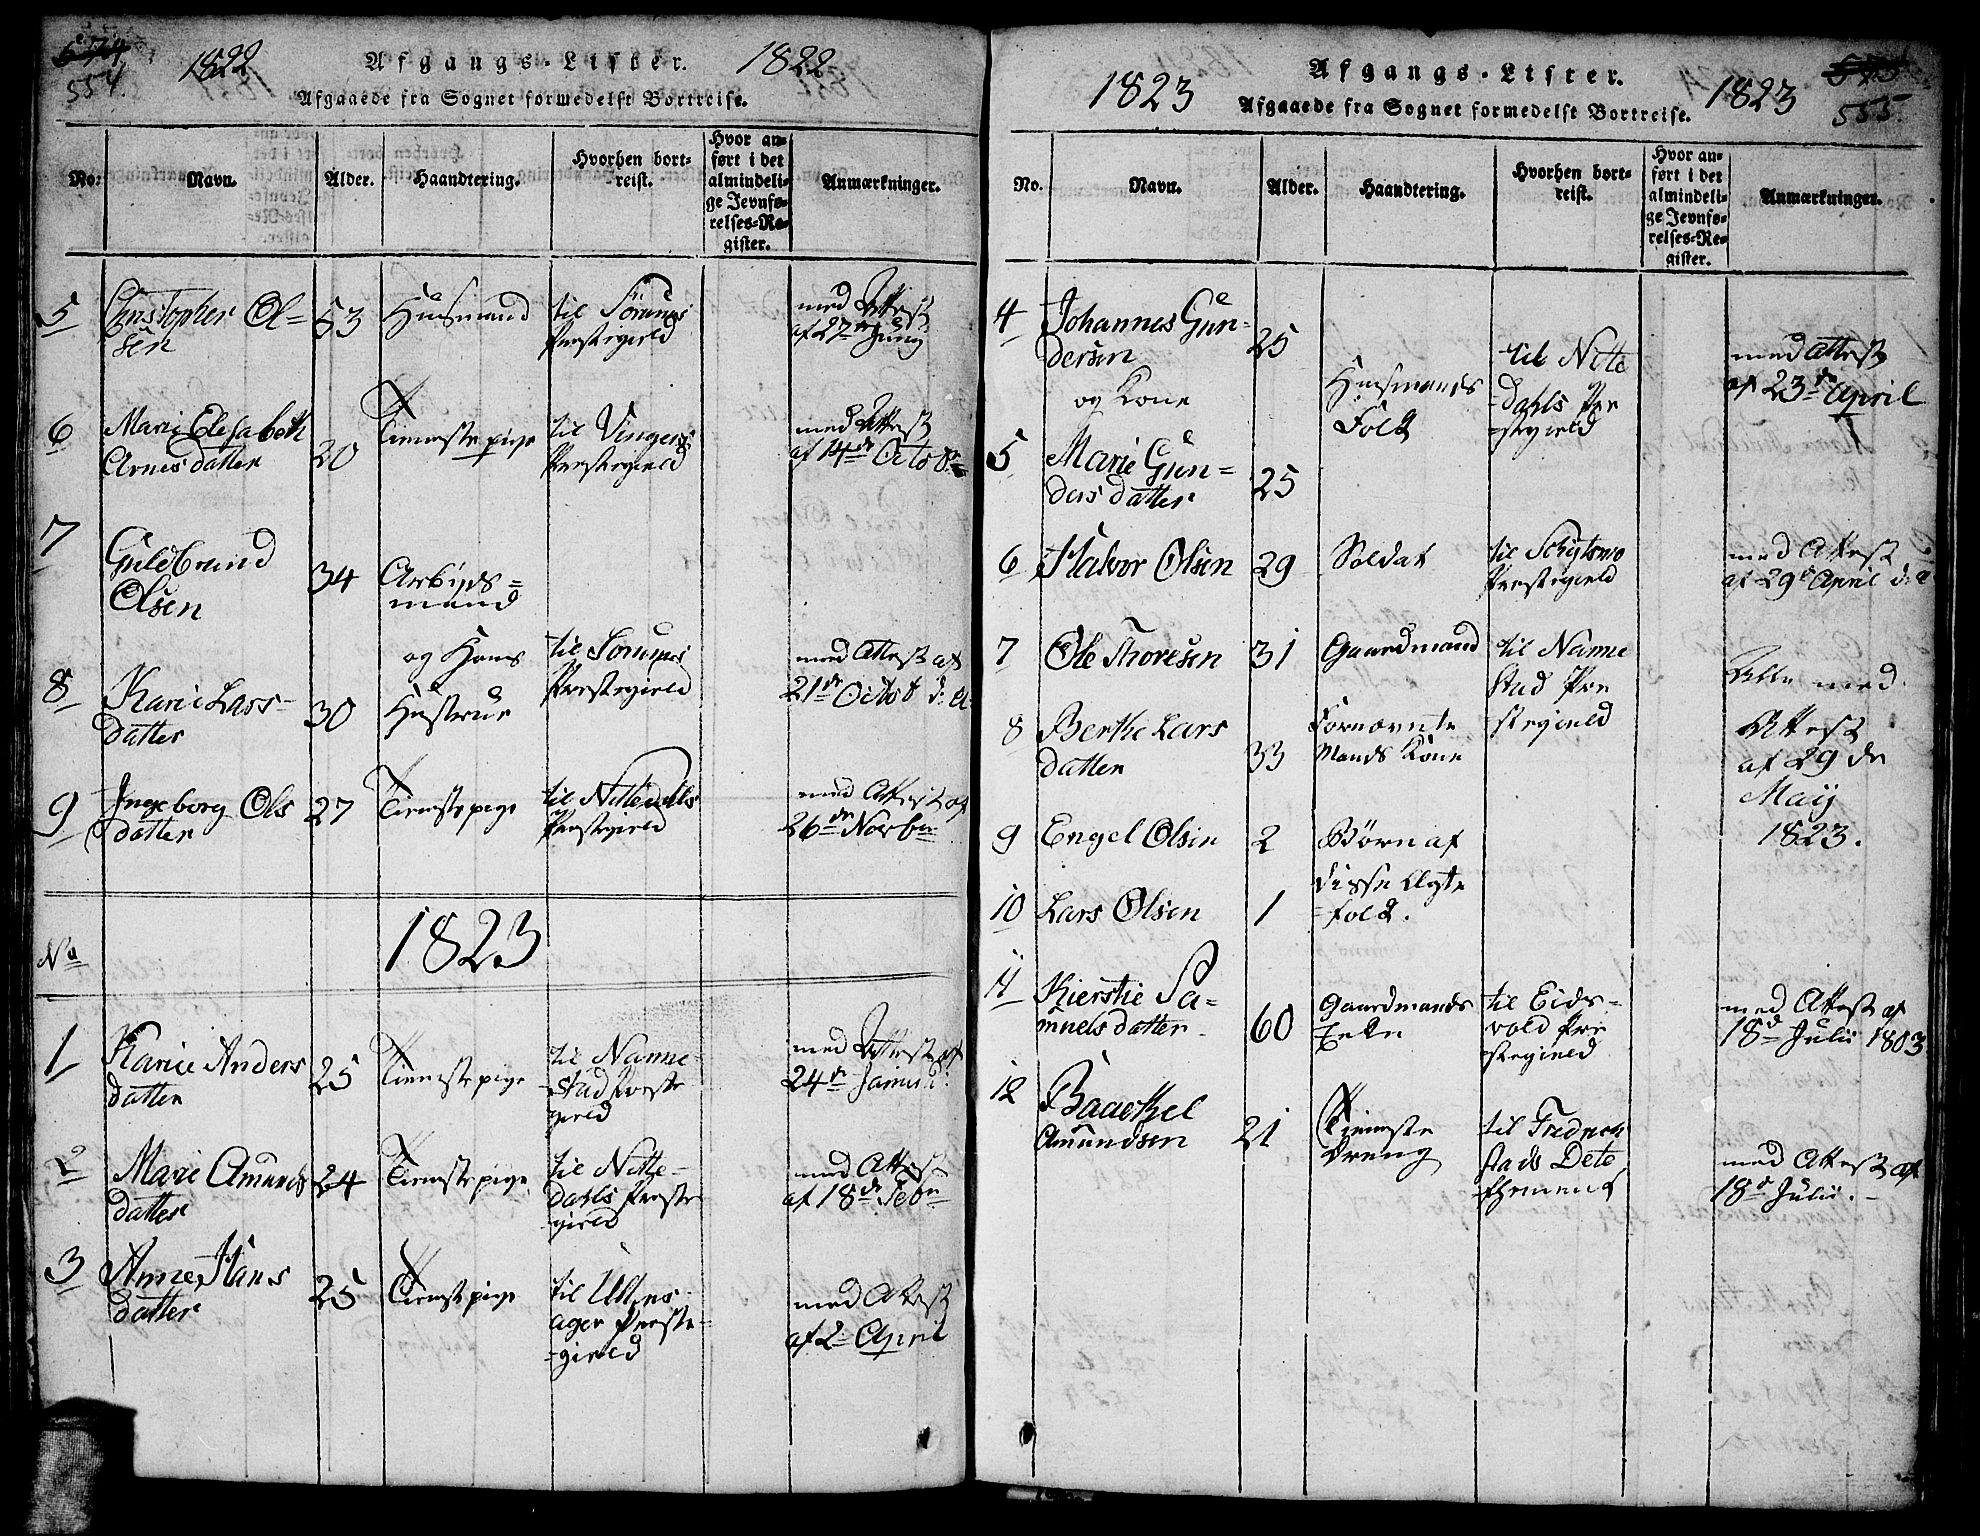 674
554.
1822
Afgangs-Lister.
1822
Afgaaede fra Sognet formedelst Bortreise.
No:
Navn.
Alder.
Haandtering.
Hvorhen bort-
reist.
Hvor an-
ført i det
almindeli-
ge Jevnfø-
relses-Re-
gister.
Anmærkninger.
5
Christopher Ol-
sen
53
Huusmand
til Sörums
Præstegield
med Attest
af 27de Juny
6
Marie Elesabeth
Arnes datter
20
Tieneste pige
til Vingers
Præstegield
med Attest
af 14de Octobr
7
Guldbrand
Olsen
34
Arbeids=
mand
8
Karie Lars-
datter
30
og Hans
Hustrue
til Sörums
Præstegield
med Attest af
21de Octob d: a
9
Ingeborg Ols
datter
27
Tieneste pige
til Nittedals
Præstegield
med Attest af
26de Novbr
No
1823
1
Karie Anders
datter
25
Tieneste pige
til Nanne-
stad Præste
gield
med Attest af
24de Januar
2
Marie Amunds
datter
24
Tieneste pige
til Nitte-
dahls Præste
gield
med Attest
af 18de Febr
3
Anne Hans
datter
25
Tieneste pige
til Ullens-
ager Præste-
gield
med Attest
af 2 April
1823
Afgangs-Lister.
1823
675
555.
Afgaaede fra Sognet formedelst Bortreise.
No.
Navn.
Alder.
Haandtering.
Hvorhen bort-
reist.
Hvor an-
ført i det
almindeli-
ge Jevnfø-
relses-Re-
gister.
Anmærkninger.
4
Johannes Gun-
dersen
25
og Kone
Huusmands
Folk
til Nitte
dahls Præ
stegield
med Attest
af 23de April
5
Marie Gun-
ders datter
25
6
Halvor Olsen
29
Soldat
til Schytsmo
Præstegield
med Attest
af 29de April d: a
7
Ole Thoresen
31
Gaardmand
til Nanne
stad Præ
stegield
Alle med
Attest
af 29 de
Maij
1823.
8
Berthe Lars
datter
33
Fornævnte
Mands Kone
9
Engel Olsen
2
Börn af
disse Ægte
folk.
10
Lars Olsen
1
11
Kierstie Sa-
muels datter
60
Gaardmands
Enke
til Eids-
vold Præ
stegield
med Attest af
18d Julii 1803
12
Baachel
Amundsen
21
Tieneste
dreng
til Fredrich
stads Dete
schement
med Attest af
18d Julii.